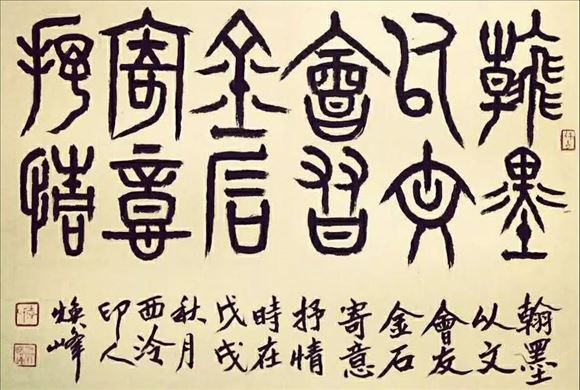 翰墨
以文
會友
金石
寄意
抒情
翰墨
以文
會友
金石
寄意
抒情
時在
戊戌
秋月
西泠
印人
煥峰